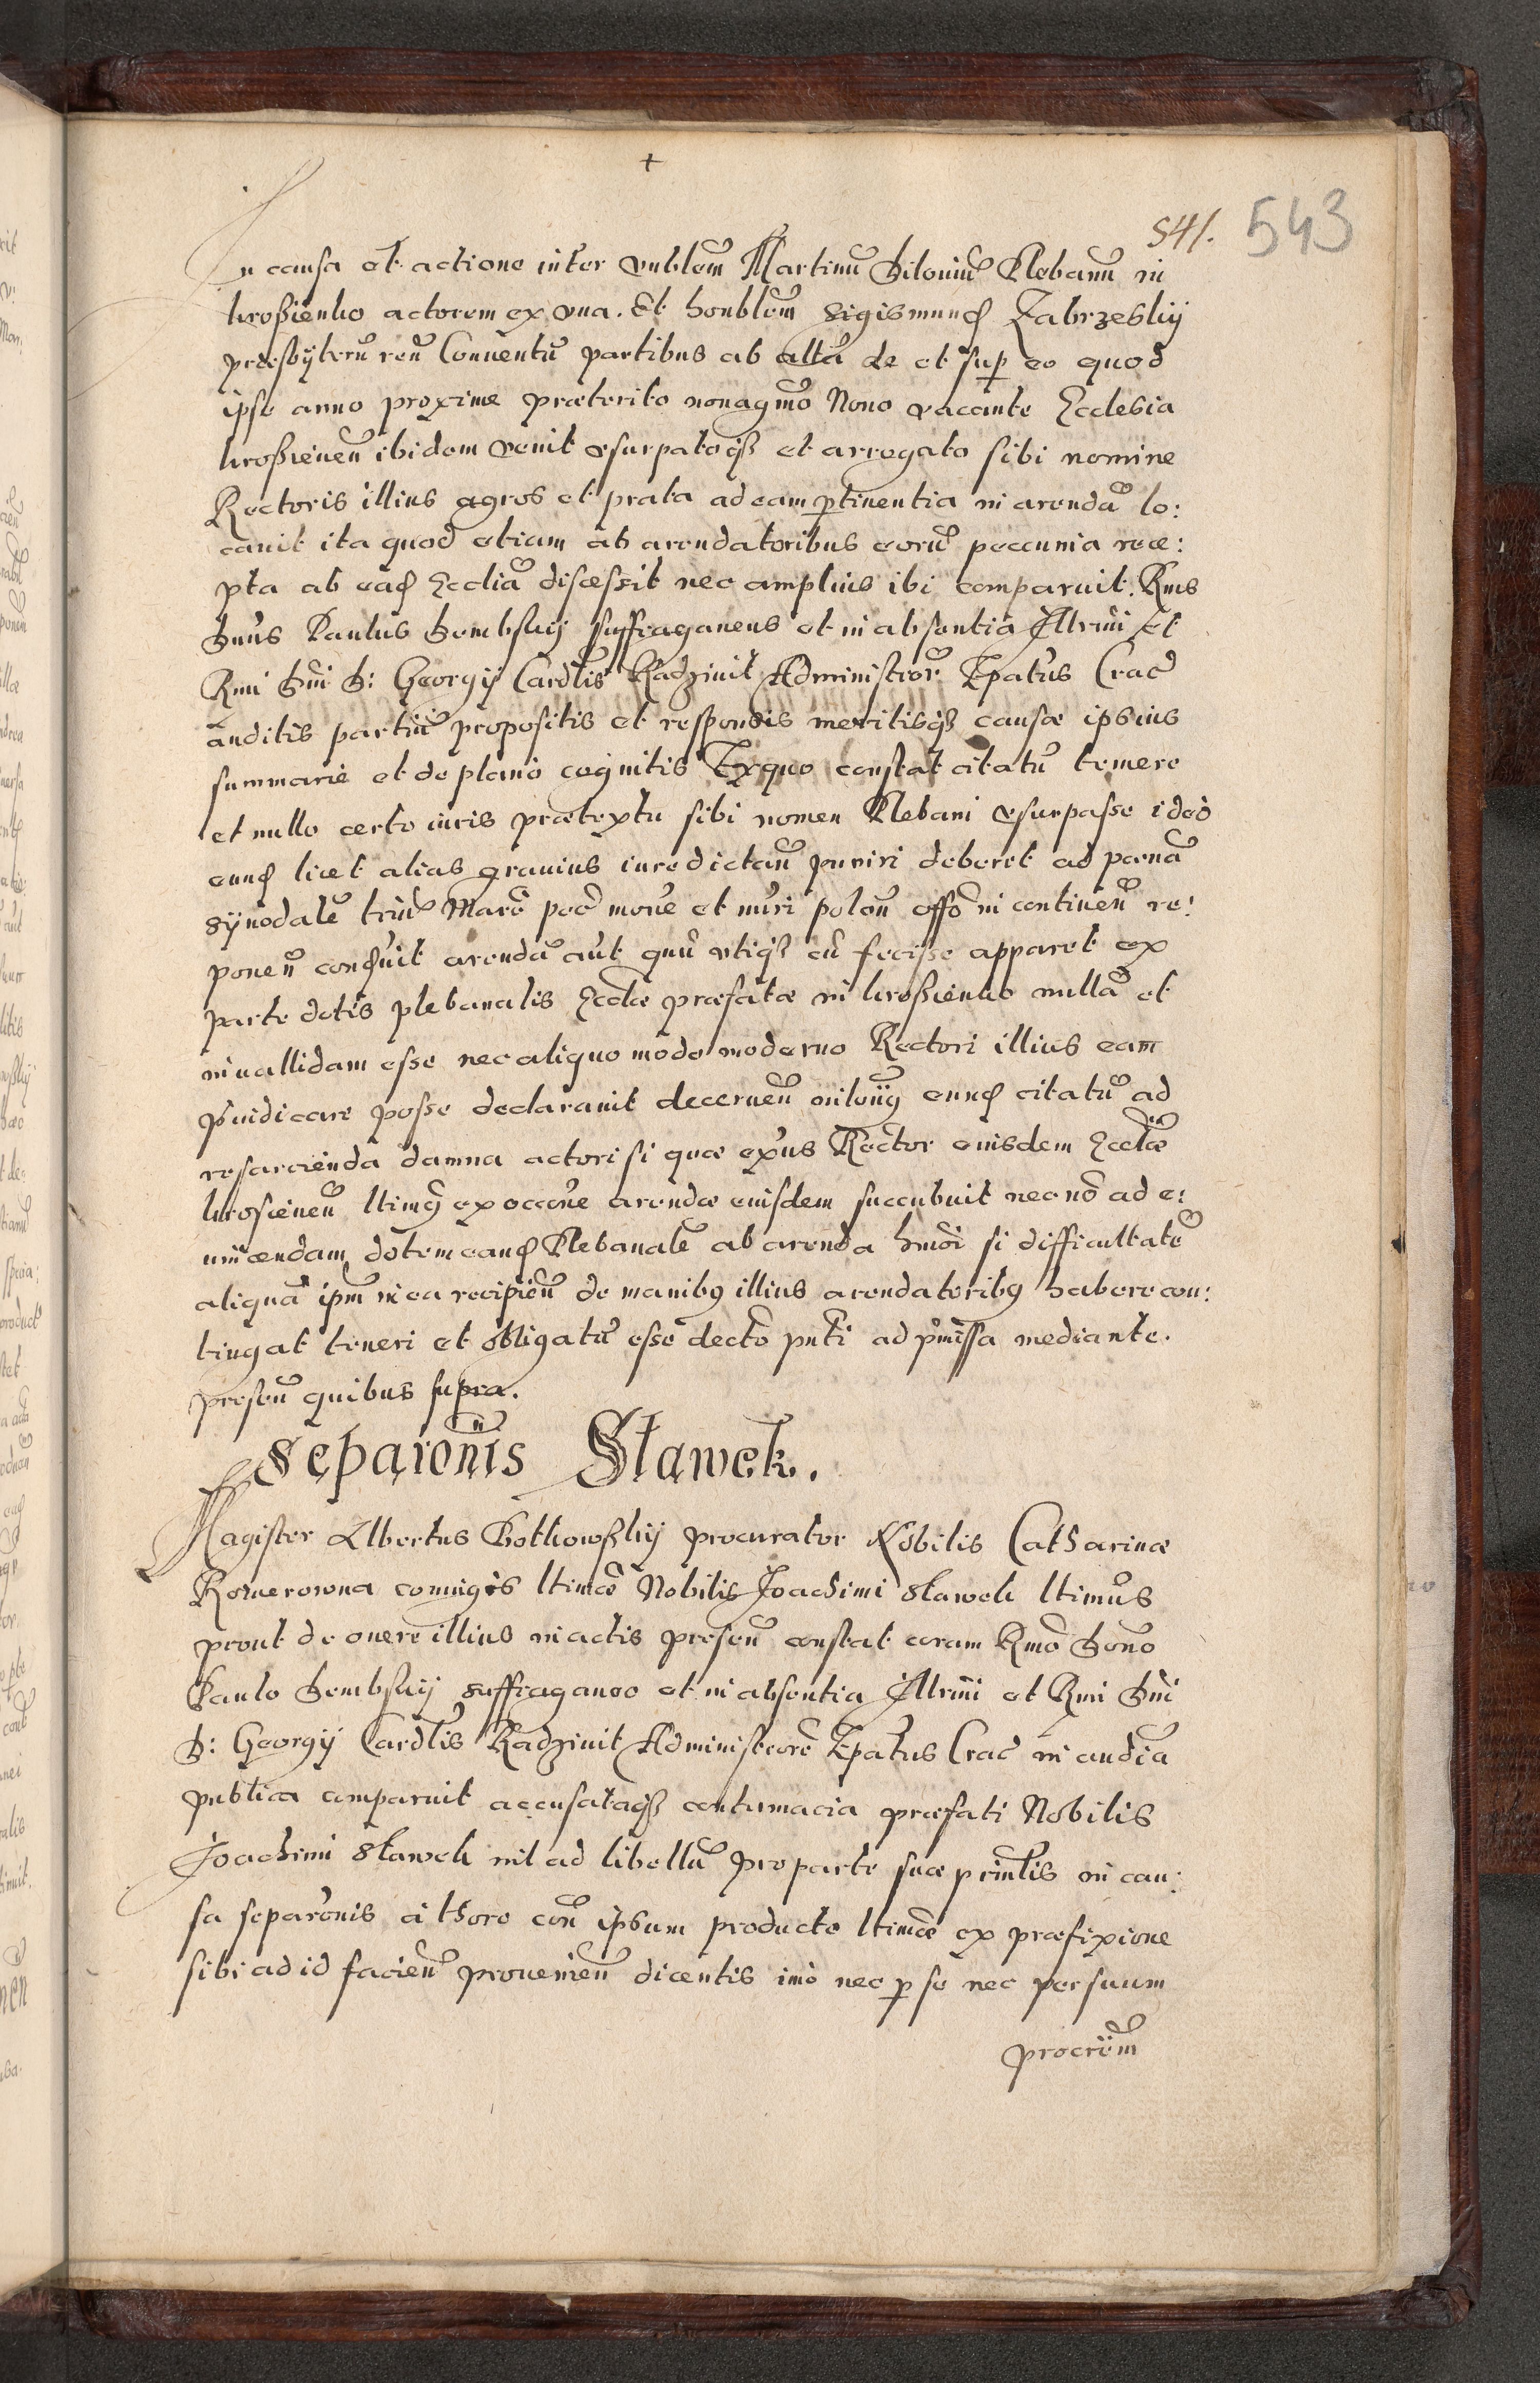 +
541. 543
In causa et actione inter venblem Martinu Silouiu Plebanu in
kroßienko actorem ex vna. Et honblem Sigismund Zabrzeskij
præsbyteru reu Conuentu partibus ab alta de et sup eo quod
ipse anno proxime præterito nonagmo Nono vacante Ecclesia
kroßienen ibidem venit vsurpatoqз et arrogato sibi nomine
Rectoris illius agros et prata ad eam ptinentia in arenda lo:
cauit ita quod etiam ab arendatoribus eoru peccunia rece:
pta ab ead Ecclia discessit nec amplius ibi comparuit. Rmus
Dnus Paulus Dembskij suffraganeus et in absentia Illrmi et
Rmi Dni D: Georgij Cardlis Radziuil Administror Epatus Crac
auditis partiu propositis et responsis meritisqз causæ ipsius
summarie et de plano cognitis Ex quo constat citatu temere
et nullo certo iuris prætextu sibi nomen Plebani vsurpasse ideo
eund licet alias grauius iure dictan puniri deberet ad pœna
synodale triu Marc pec mone et nuri polon offo in continen re:
ponen condnit arenda aut qnu vtiqз eu fecisse apparet ex
parte dotis plebanalis Eccliæ præfatæ in kroßienko nulla et
inuallidam esse nec aliquo modo moderno Rectori illius eam
piudicare posse declarauit decernen eund citatu ad
resarcienda damna actori si quæ exius Rector eiusdem Eccliæ
krosienen ltime ex occone arendæ eiusdem succubuit nec no ad e:
uincendam dotem eand Plebanale ab arenda hmoi si difficultate
aliqua ipm in ea recipien de manibus illius arendatoribus habere con:
tingat teneri et obligatu esse decto pnti ad pmissa mediante.
presen quibus supra.
Separonis Sławek.
Magister Albertus Gotkowßkij procurator Nobilis Catharinæ
Romerowna coniugis ltimæ Nobilis Joachimi Sławek ltimus
prout de onere illius in actis presen constat coram Rmo Dono
Paulo Dembskij suffraganeo et in absentia Illrmi et Rmi Dni
D: Georgij Cardlis Radziuil Administrore Epatus Crac in audia
publica comparuit accusataqз contumacia præfati Nobilis
Joachimi Sławek nil ad libellu pro parte suæ prinlis in cau:
sa separonis a thoro con ipsum producto ltimæ ex præfixione
sibi ad id facien prouenien dicentis imo nec p se nec per suum
procrem